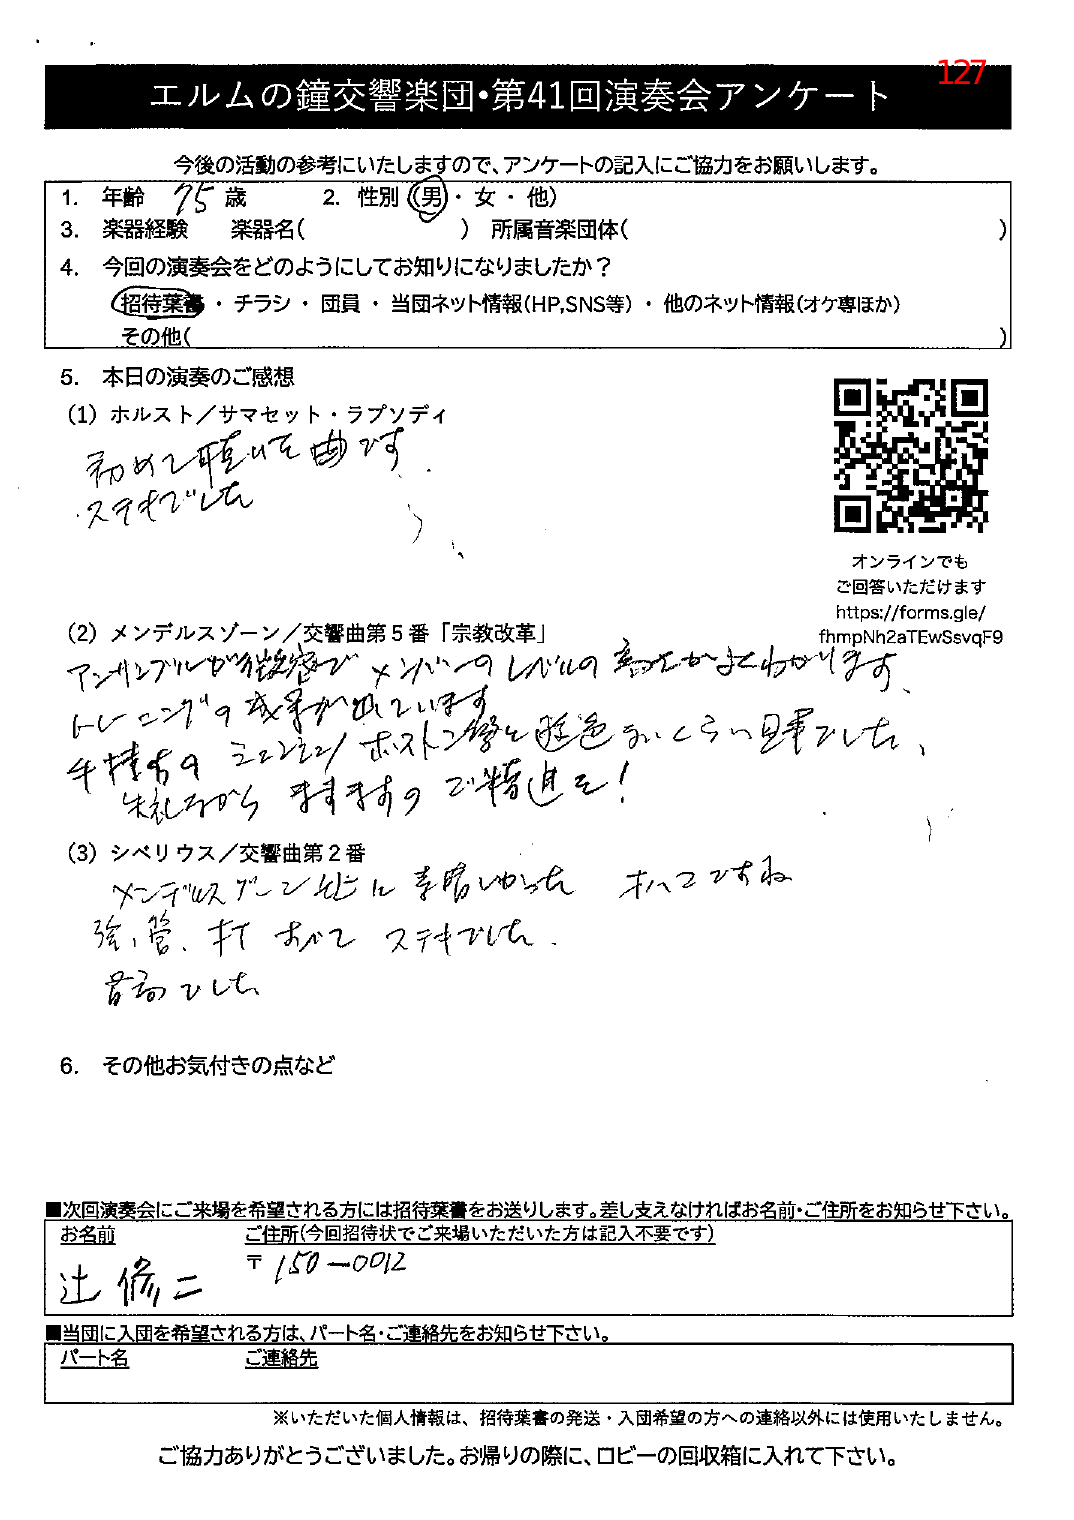 127
エルムの鐘交響楽団・第41回演奏会アンケート
今後の活動の参考にいたしますので、アンケートの記入にご協力をお願いします。
1. 年齢 75 歳 2. 性別 (男・ 女 ・ 他)
3. 楽器経験 楽器名( ) 所属音楽団体( )
4. 今回の演奏会をどのようにしてお知りになりましたか？
招待葉書 ・ チラシ ・ 団員 ・ 当団ネット情報(HP,SNS等) ・ 他のネット情報(オケ専ほか)
その他( )
5. 本日の演奏のご感想
(1) ホルスト／サマセット・ラプソディ
初めて聴いた曲です.
ステキでした
オンラインでも
ご回答いただけます
https://forms.gle/
fhmpNh2aTEwSsvqF9
(2) メンデルスゾーン／交響曲第５番「宗教改革」
アンサンブルが緻密で メンバーのレベルの高さがよくわかります、
トレーニングの成果が出ています
手持ちの ミュンシュ/ボストン響と遜色ないくらい見事でした、
失礼ながら ますますの ご精進を！
(3) シベリウス／交響曲第２番
メンデルスゾーン 共に 素晴しかった オハコですね
弦、管、打 すべて ステキでした.
最高でした
6. その他お気付きの点など
■次回演奏会にご来場を希望される方には招待葉書をお送りします。差し支えなければお名前・ご住所をお知らせ下さい。
お名前 ご住所(今回招待状でご来場いただいた方は記入不要です)
〒 150-0012
辻 修二
■当団に入団を希望される方は、パート名・ご連絡先をお知らせ下さい。
パート名 ご連絡先
※いただいた個人情報は、招待葉書の発送・入団希望の方への連絡以外には使用いたしません。
ご協力ありがとうございました。お帰りの際に、ロビーの回収箱に入れて下さい。